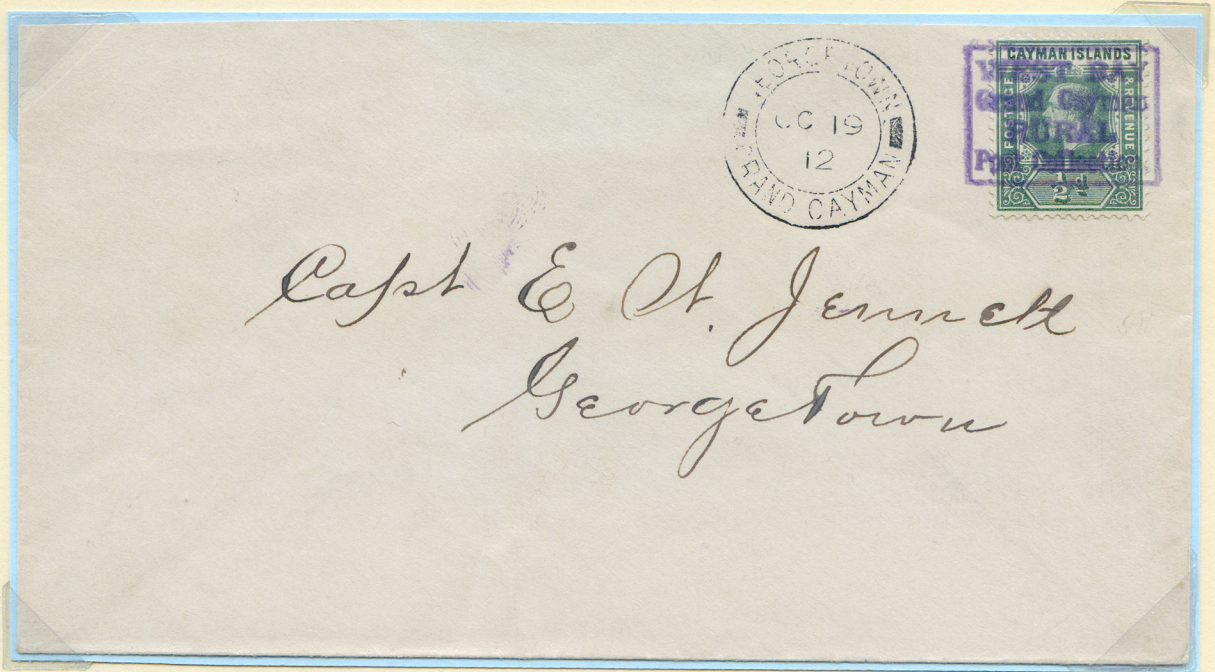 GEORGETOWN
OC 19
12
GRAND CAYMAN
CAYMAN ISLANDS
POSTAGE & REVENUE
½d
WEST BAY
Grand Cayman
RURAL
Post Collection
Capt E. A. Jennett
GeorgeTown